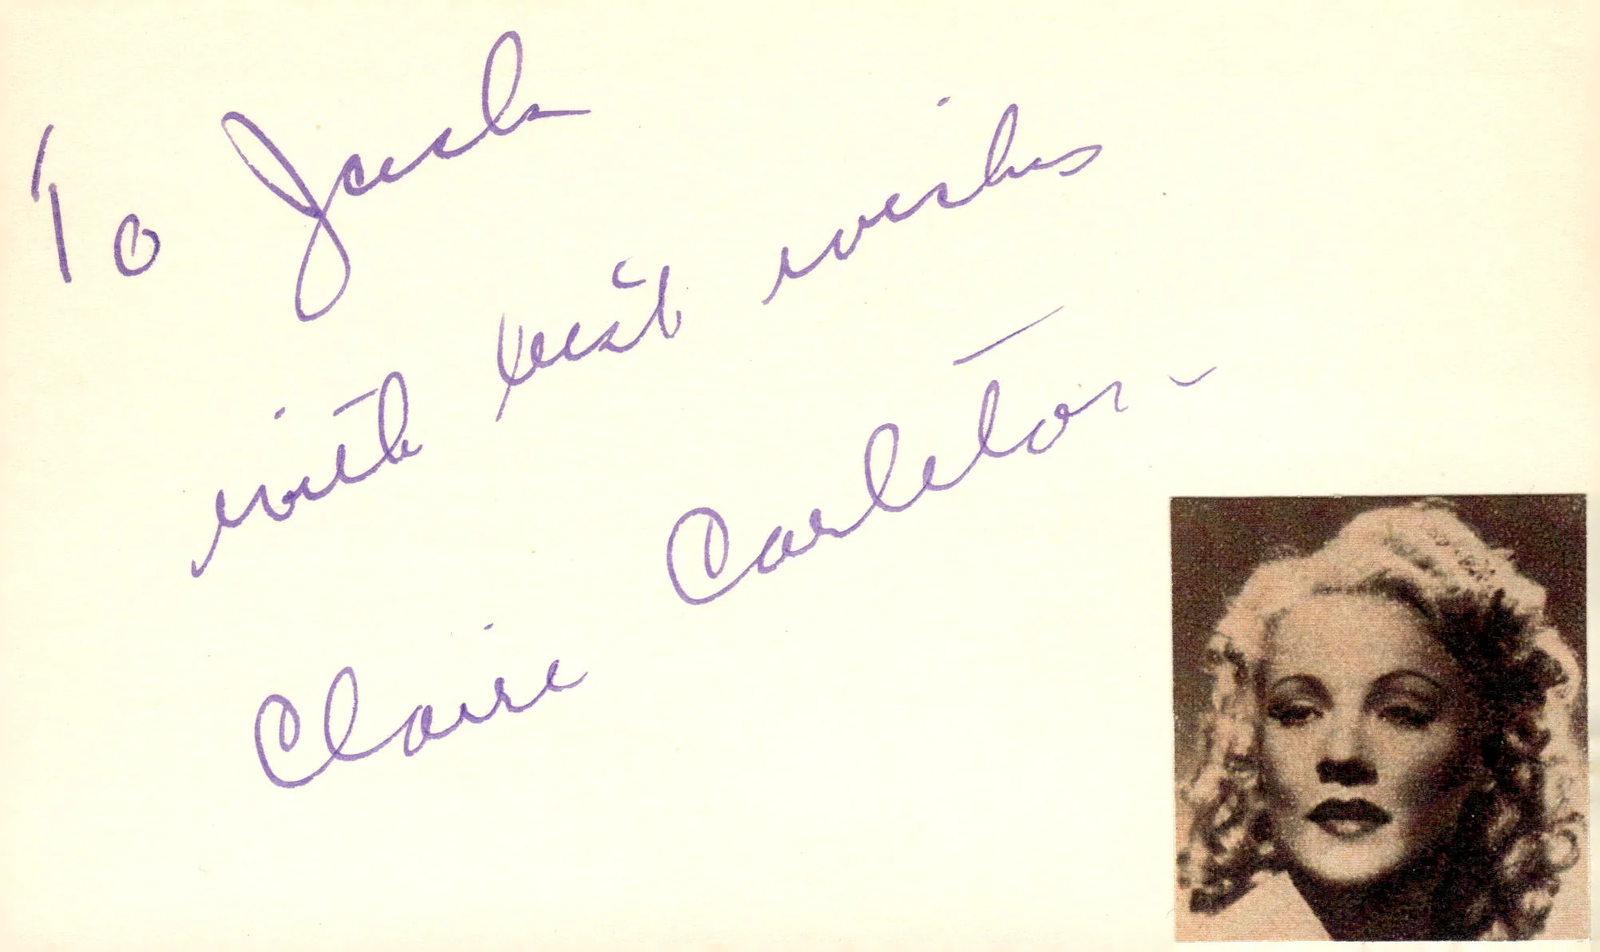 To Jack
with best wishes
Claire Carleton